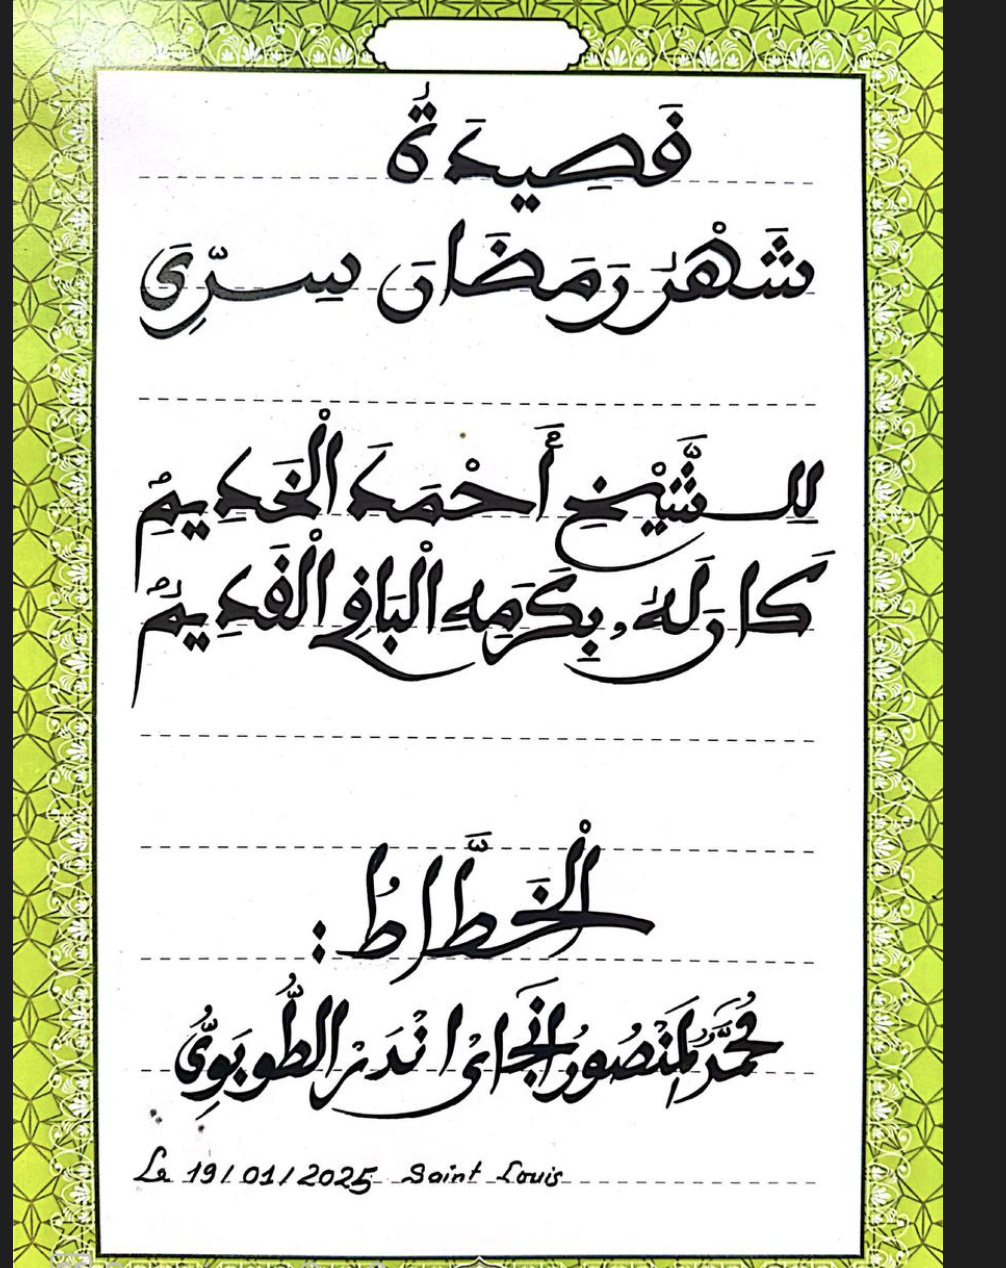 قَصِيدَةُ
شَهْرُ رَمَضَانَ سِرِّي
لِلشَّيْخِ أَحْمَدَ الْخَدِيمُ
كَانَ لَهُ، بِكَرَمِهِ الْبَاقِي الْقَدِيمُ
الْخَطَّاطُ :
مُحَمَّدُ لْمَنْصُورُ انْجَايْ انْدَرْ الطُّوبَوِيُّ
Le 19/01/2025 Saint Louis